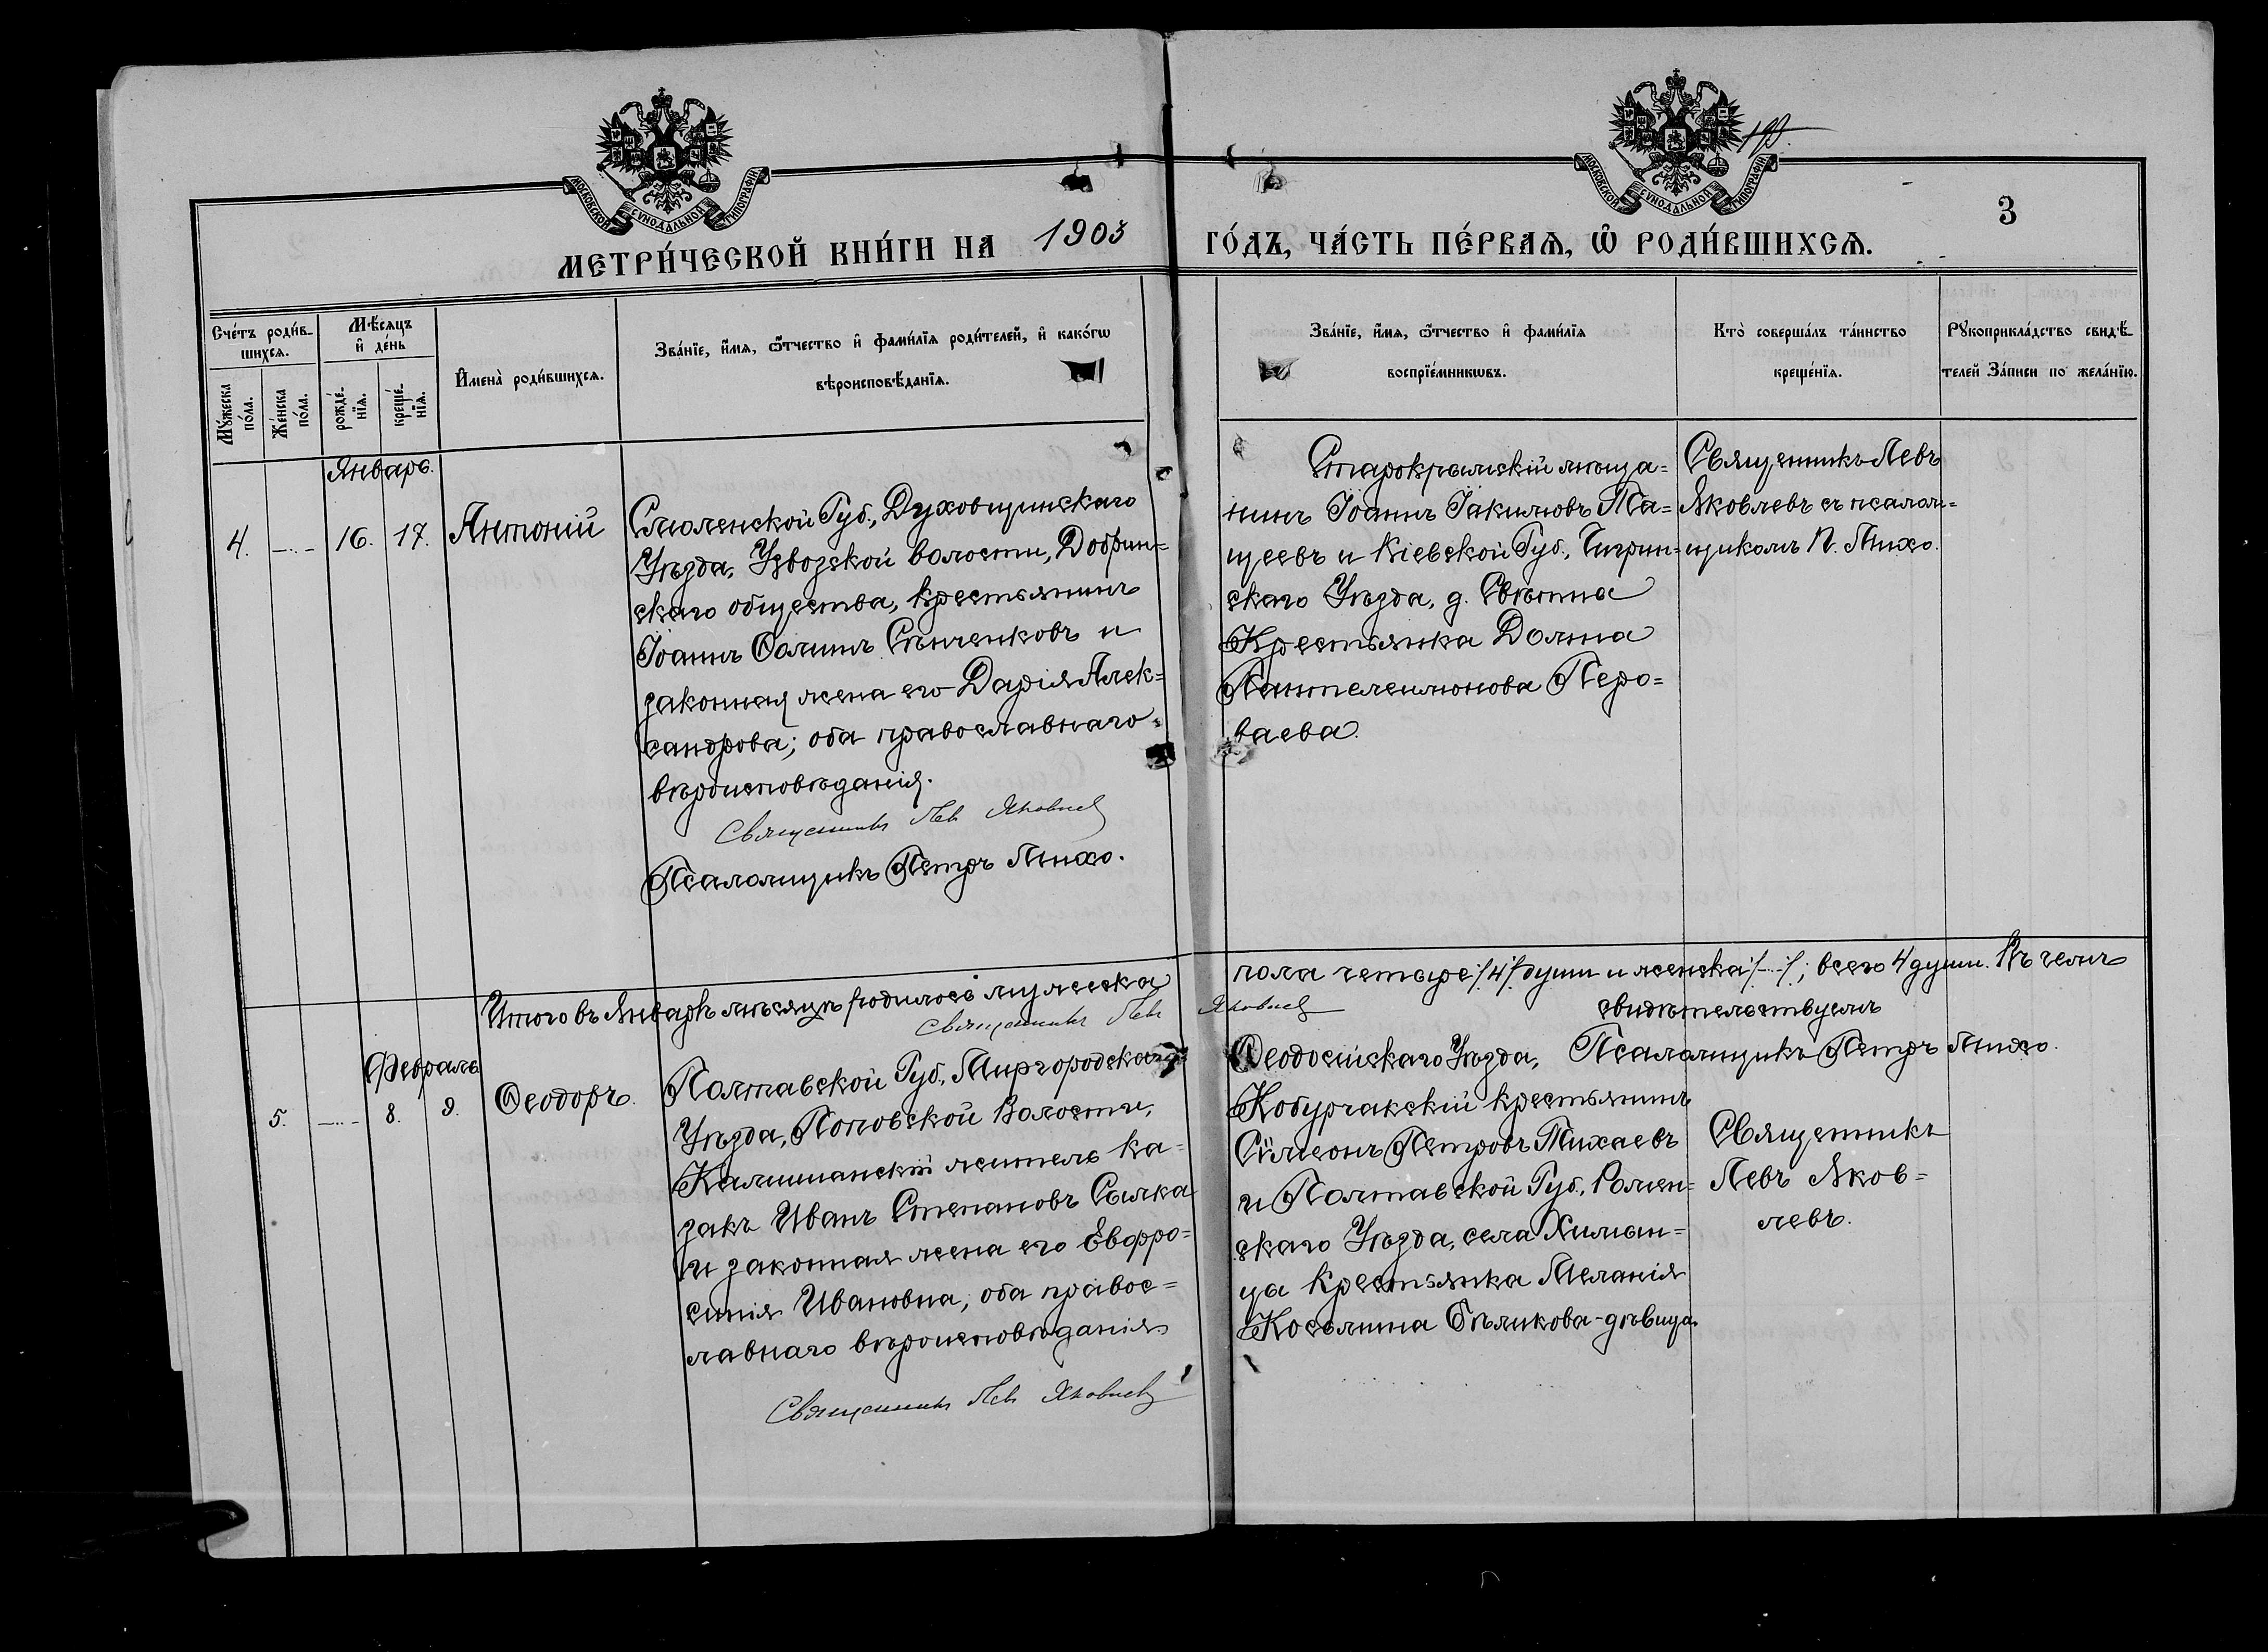 МОСКОВСКОЙ СѴНОДАЛЬНОЙ ТИПОГРАФІИ
МОСКОВСКОЙ СѴНОДАЛЬНОЙ ТИПОГРАФІИ
3
МЕТРИ́ЧЕСКОЙ КНИ́ГИ НА 1903 ГО́ДЪ, ЧА́СТЬ ПЕ́РВАѦ, Ѡ РОДИ́ВШИХСѦ.
Сче́тъ роди́в-
шихсѧ.
Мꙋ́жеска
по́ла.
Же́нска
по́ла.
Мѣ́сѧцъ
и҆ де́нь
рожде́-
нїѧ.
креще́-
нїѧ.
И҆мена̀ роди́вшихсѧ.
Зва́нїе, и҆́мѧ, ѻ҆́тчество и҆ фами́лїѧ роди́телей, и҆ како́гѡ
вѣроисповѣ́данїѧ.
Зва́нїе, и҆́мѧ, ѻ҆́тчество и҆ фами́лїѧ
воспрїе́мникѡвъ.
Кто̀ соверша́лъ та́инство
креще́нїѧ.
Рꙋкоприкла́дство свидѣ́-
телей За́писи по жела́нїю.
Январь.
4. —"— 16. 17. Антоній
Смоленской Губ., Духовщинскаго
Уѣзда, Узвозской волости, Добрин-
скаго общества, крестьянинъ
Іоаннъ Ѳоминъ Сѣнченковъ и
законная жена его Дарія Алек-
сандрова; оба православнаго
вѣроисповѣданія.
Священникъ Левъ Яковлев
Псаломщикъ Петръ Михо.
Старокрымскій мѣща-
нинъ Іоаннъ Іакимовъ Та-
щеевъ и Кіевской Губ., Чигрин-
скаго Уѣзда, д. Свѣтна
Крестьянка Домна
Пантелеимонова Перо-
ваева.
Священникъ Левъ
Яковлевъ съ псалом-
щикомъ П. Михо.
Итого въ Январѣ мѣсяцѣ родилось мужеска
пола четыре /4/ души и женска /-"-/; всего 4 души. Въ чемъ
свидѣтельствуемъ
Священникъ Левъ Яковлев
Псаломщикъ Петръ Михо.
Февраль
5. —"— 8. 9. Ѳеодоръ.
Полтавской Губ., Миргородскаго
Уѣзда, Поповской Волости,
Калишанскій житель ка-
закъ Иванъ Степановъ Сылка
и законная жена его Евфро-
синія Ивановна; оба правос-
лавнаго вѣроисповѣданія.
Священникъ Левъ Яковлев
Ѳеодосійскаго Уѣзда,
Кобурчакскій крестьянинъ
Сѵмеонъ Петровъ Тихаевъ
и Полтавской Губ., Ромен-
скаго Уѣзда, села Хилын-
ца Крестьянка Меланія
Косьмина Бѣликова-дѣвица.
Священникъ
Левъ Яков-
левъ.